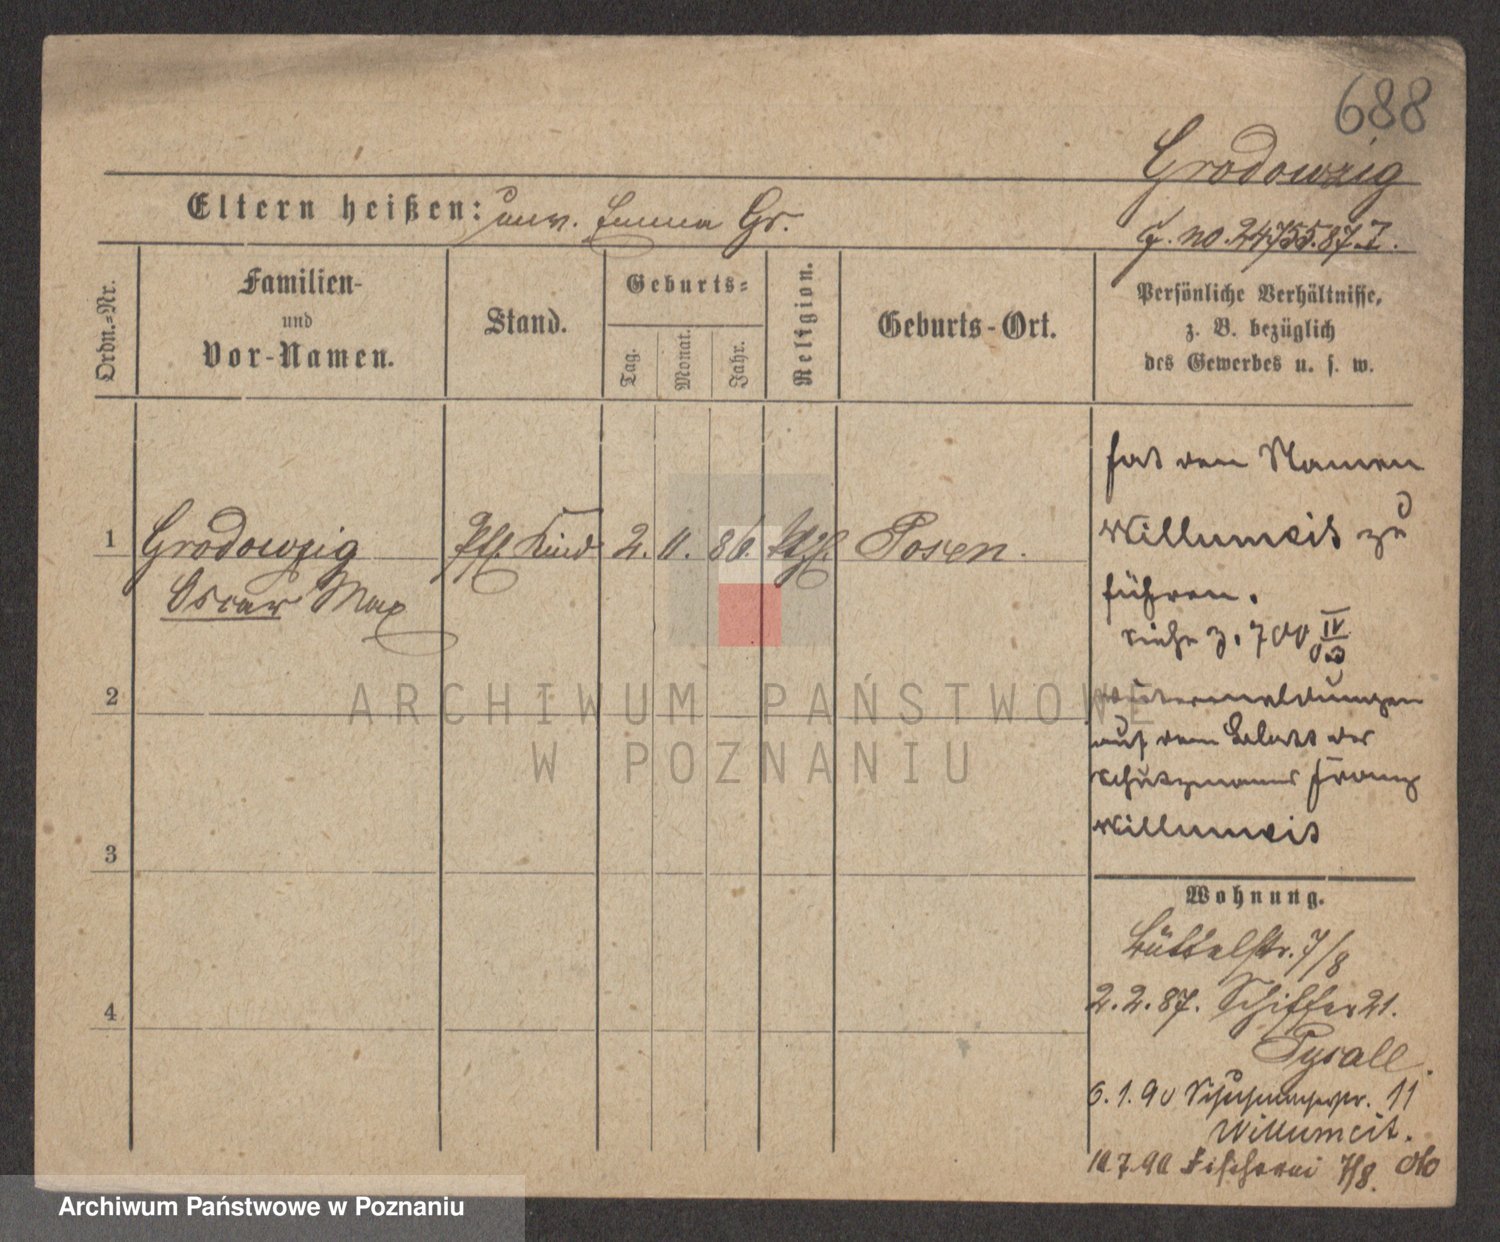 688
Grodowzig
G. no. 24755.87.I.
Eltern heißen: unv. Emma Gr.
Ordn.=Nr.
Familien-
und
Vor-Namen.
Stand.
Geburts=
Tag.
Monat.
Jahr.
Religion.
Geburts-Ort.
Persönliche Verhältnisse,
z. B. bezüglich
des Gewerbes u. s. w.
1
Grodowzig
Oscar Max
Pfl. Kind
2.
11.
86.
Posen.
2
3
4
hat den Namen
Willumeit zu
führen.
siehe z. 700 IV
auf dem Blatt des
Schutzmanns Franz
Willumeit
Wohnung.
Büttelstr. 7/8
2.2.87. Schiffer 21.
Pysall.
6.1.90 Schuhmacherstr. 11
Willumeit.
10.7.90 Fischerei 7/8. do
ARCHIWUM PAŃSTWOWE
W POZNANIU
Archiwum Państwowe w Poznaniu